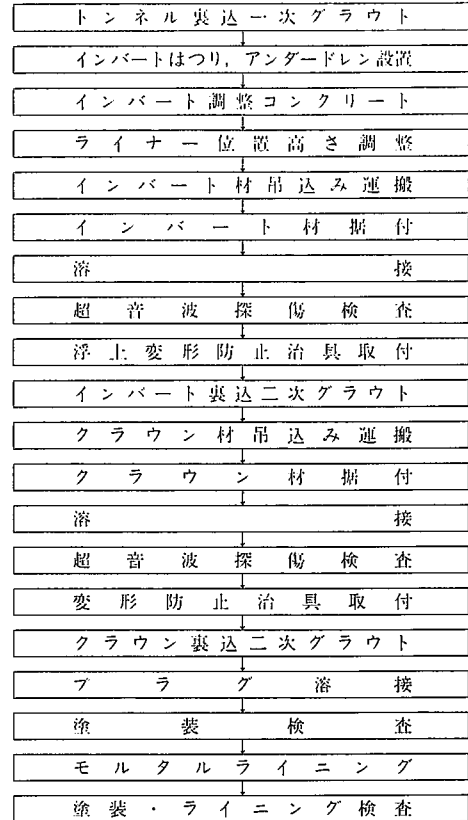 トンネル裏込一次グラウト
インバートはつり，アンダードレン設置
インバート調整コンクリート
ライナー位置高さ調整
インバート材吊込み運搬
インバート材据付
溶接
超音波探傷検査
浮上変形防止治具取付
インバート裏込二次グラウト
クラウン材吊込み運搬
クラウン材据付
溶接
超音波探傷検査
変形防止治具取付
クラウン裏込二次グラウト
プラグ溶接
塗装検査
モルタルライニング
塗装・ライニング検査